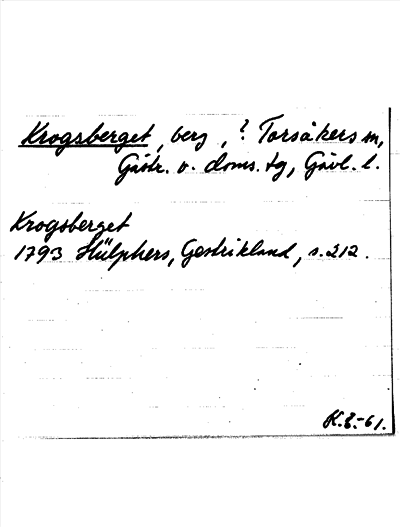 Krogsberget, berg, ? Torsåkers sn,
Gästr. v. doms. tg, Gävl. l.
Krogsberget
1793 Hülphers, Gestrikland, s. 212.
K.E.-61.